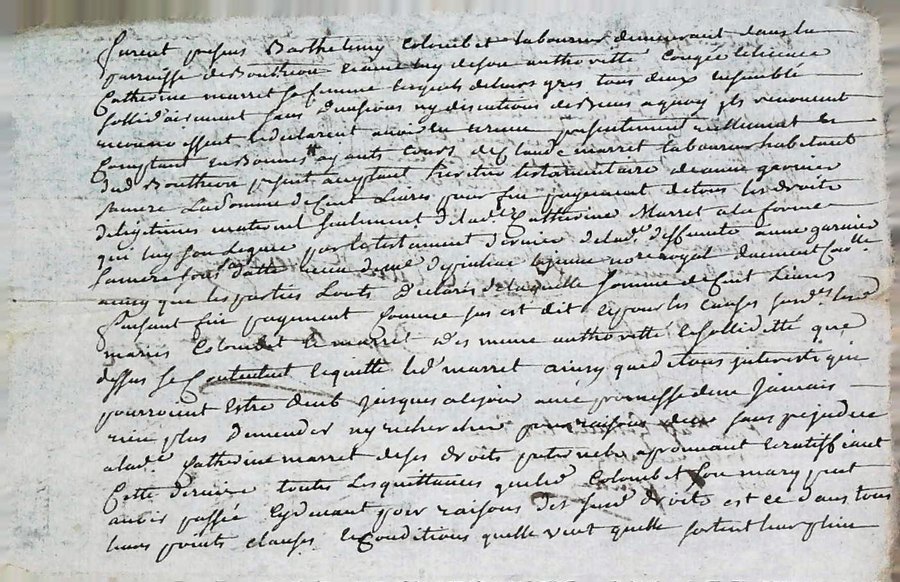 furent presens Barthelemy Colombet laboureur demeurant dans la
parroisse de Bouthéon et avec luy de son authoritté congée et licence
Catherine marret sa femme lesquels de leurs gres tous deux ensemble
sollidairement sans division ny discution de biens a quoy ils renoncent
ont confessent et declarent avoir eu et receu presentement reellement et
comptant en bonnes ayants cours de Claude marret laboureur habitant
dud Bouthéon present acceptant heritier testamentaire de anne garnier
sa mere La somme de Cent Livres pour fin payement de tous les droits
de legitimes maternel seulement de lad. Catherine Marret a la forme
qui luy son legue par le testament dernier de lad. deffunte anne garnier
sa mere sous datte recu notte royal duement Con.lle
ainsy que les parties L'onts Declarés de laquelle somme de Cent Livres
faisant fin payement comme jus est dit et pour les causes susd.
maries Colombet et marret de meme authoritté et sollidité que
dessus se Contentent et quitte led. marret ainsy que de tous interest qui
pourroient estre deub jusques a ce jour avec promesse de ne Jamais
rien plus demender ny rechercher pour raison sans prejudice
a lad. Catherine marret de ses droits paternels aprouvant et ratiffiant
Cette derniere toutes Les quittances que led Colombet son mary peut
avoir passée cydevant pour raisons des susd. droits et ce dans tous
leurs points clauses et Conditions quelle veut quelle sortent leur plein